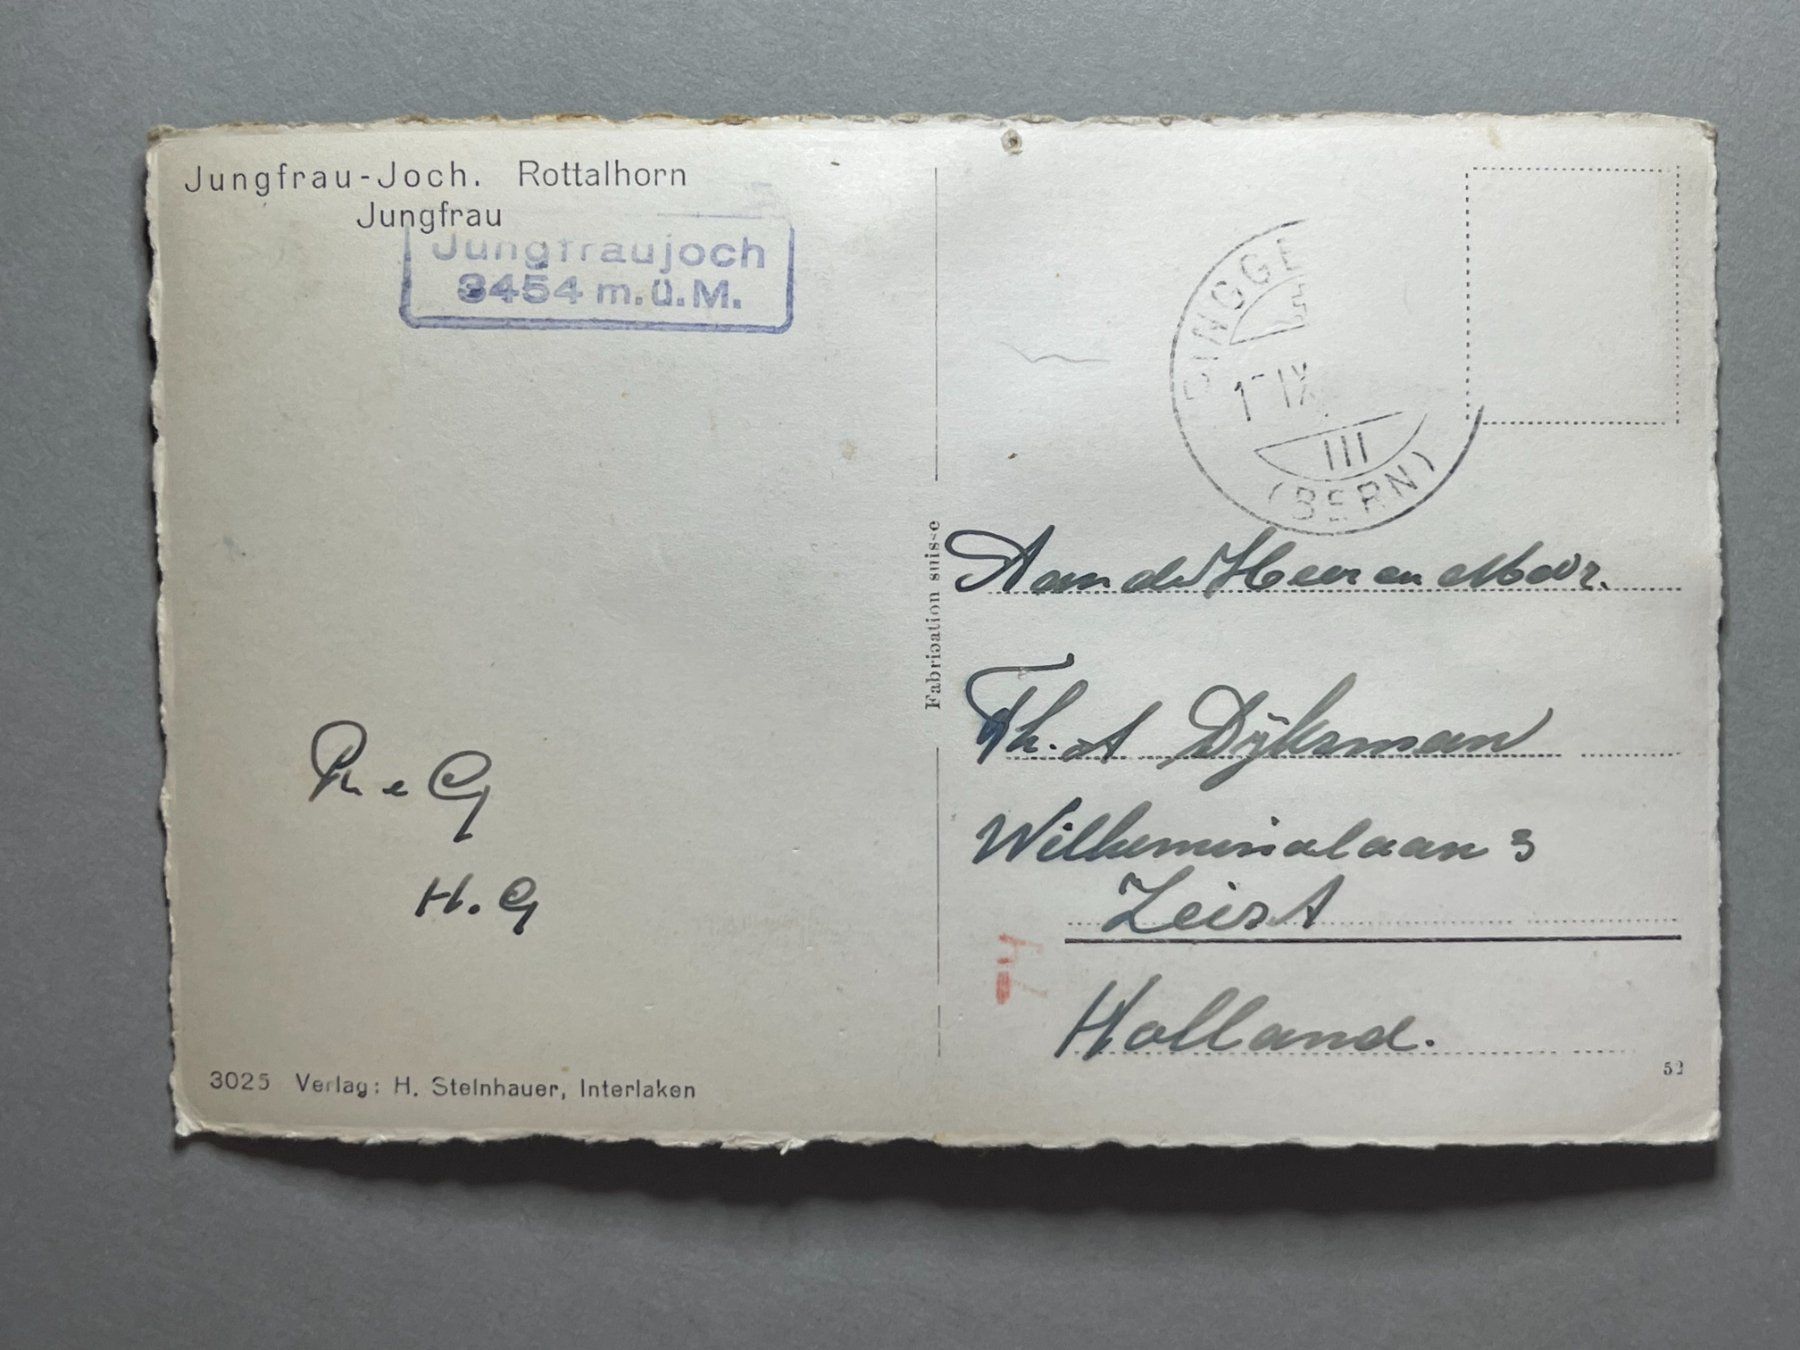 Jungfrau-Joch. Rottalhorn
Jungfrau
Jungfraujoch
3454 m.ü.M.
RINGGE
1-IX
III
(BERN)
Fabrication suisse
Aan de Heer en Mevr.
Th. A Dÿksman
Wilheminalaan 3
Zeist
Holland.
R e G
H. G
74
3025 Verlag: H. Steinhauer, Interlaken
52